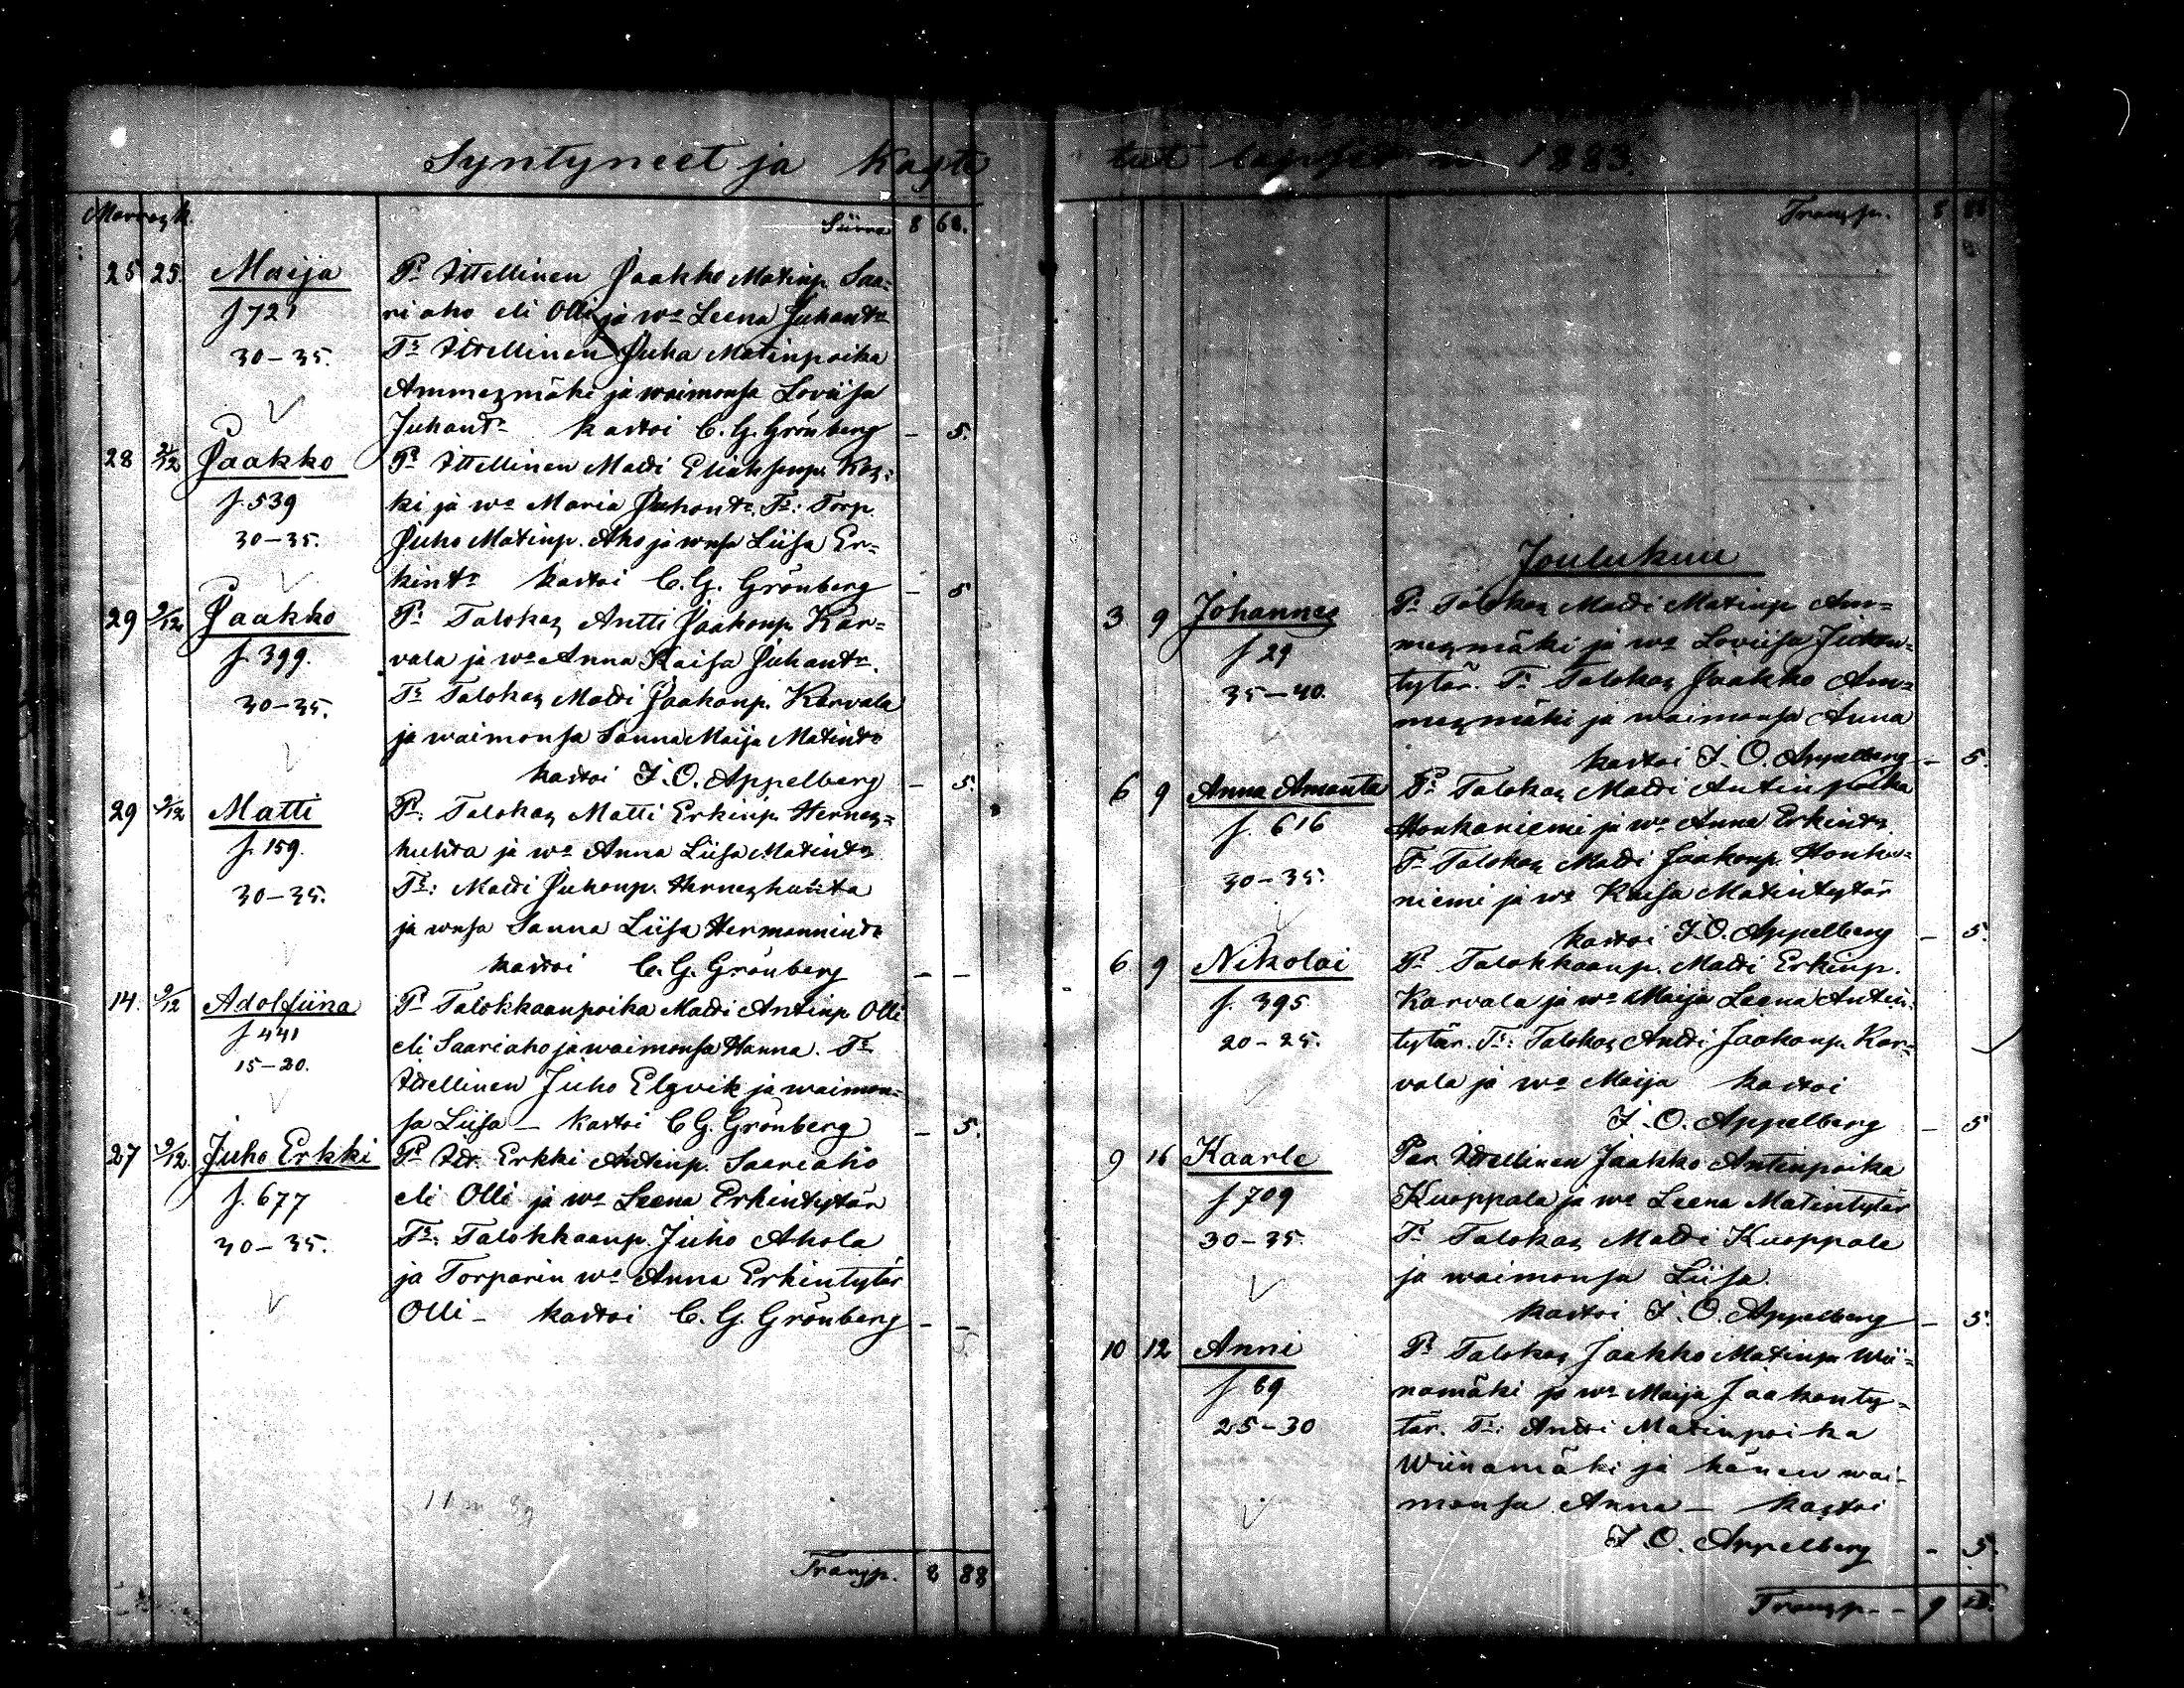 Syntyneet ja kaste
Marrask.
Siirra 8 68.
25 25. Maija Pr Ittellinen Jaakko Matinp. Saa=
f 721 riaho eli Olli ja wa Leena Juhantr
30-35. Tr Ittellinen Juha Matinpoika
Ammesmäki ja waimonsa Loviisa
Juhantr kastoi C. G. Grönberg - 5.
28 2/12 Jaakko Pr Ittellinen Matti Eliaksenp. Kos=
f. 539 ki ja wa Maria Juhontr. Tr: Torp.
30-35. Juho Matinp. Aho ja wnsa Liisa Er=
kintr kastoi C. G. Grönberg - 5
29 9/12 Jaakko Pr Talokas Antti Jaakonp. Kar=
f. 399. vala ja wa Anna Kaisa Juhantr.
30-35. Tr Talokas Matti Jaakonp. Karvala
ja waimonsa Sanna Maija Matintr
kastoi J. O. Appelberg - 5.
29 9/12 Matti Pr. Talokas Matti Erkinp. Hernes=
f. 159. huhta ja wa Anna Liisa Matintr
30-35. Tr: Matti Juhonp. Herneshuhta
ja wnsa Sanna Liisa Hermannintr
kastoi C. G. Grönberg - -
14. 9/12 Adolfiina Pr Talokkaanpoika Matti Antinp. Olli
f 441 eli Saariaho ja waimonsa Hanna. Tr
15-20. Ittellinen Juho Elgvik ja waimon=
sa Liisa - kastoi C G. Grönberg - 5.
27 9/12. Juho Erkki Pr Itt. Erkki Antinp. Saariaho
f. 677 eli Olli ja wa Leena Erkintytär
30-35. Tr: Talokkaanp. Juho Ahola
ja Torparin wa Anna Erkintytär
Olli - kastoi C. G. Grönberg - -
Transp. 8 88
tut lapset w. 1883.
Transp. 8
Joulukuu
3 9 Johannes Pr Talokas Matti Matinp Am=
f 29 mesmäki ja wa Loviisa Juhan=
35-40. tytär. Tr Talokas Jaakko Am=
mesmäki ja waimonsa Anna
kastoi J. O. Appelberg - 5.
6 9 Anna Amanta Pr Talokas Matti Antinpoika
f. 616 Honkaniemi ja wa Anna Erkintr.
30-35. Tr Talokas Matti Jaakonp. Honka=
niemi ja wa Kaisa Matintytär
kastoi J. O. Appelberg - 5.
6 9 Nikolai Pr Talokkaanp. Matti Erkinp.
f. 395 Karvala ja wa Maija Leena Antin=
20-25. tytär. Tr: Talokas Antti Jaakonp. Kar=
vala ja wa Maija kastoi
J. O. Appelberg - 5
9 16 Kaarle Par Ittellinen Jaakko Antinpoika
f 709 Kuoppala ja wa Leena Matintytär
30-35. Tr Talokas Matti Kuoppala
ja waimonsa Liisa.
kastoi J. O. Appelberg - 5.
10 12 Anni Pr Talokas Jaakko Matinp. Wii=
f 69 namäki ja wa Maija Jaakonty=
25-30 tär. Tr: Antti Matinpoika
Wiinamäki ja hänen wai=
monsa Anna - kastoi
J. O. Appelberg - 5.
Transp. - 9